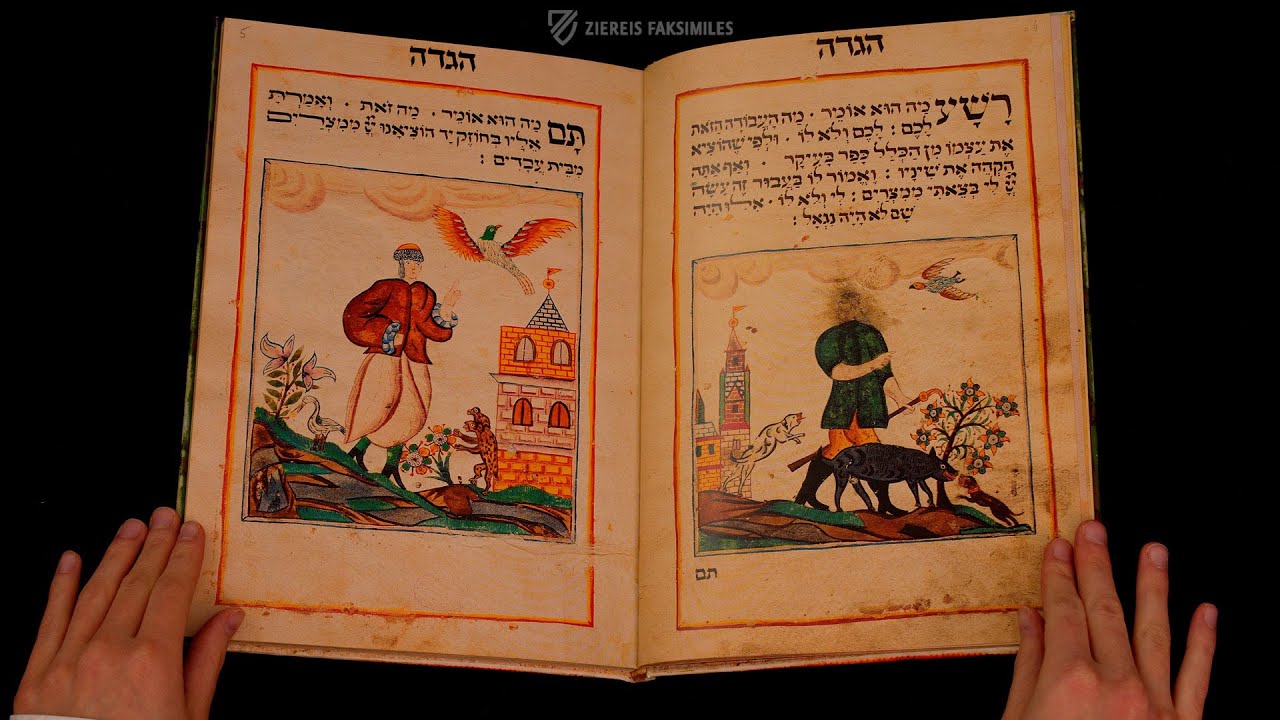 ZIEREIS FAKSIMILES
4
הגדה
רָשָׁע מַה הוּא אוֹמֵר . מַה הָעֲבוֹדָה הַזֹאת
לָכֶם : לָכֶם וְלֹא לוֹ . וּלְפִי שֶׁהוֹצִיא
אֶת עַצְמוֹ מִן הַכְּלָל כָּפַר בָּעִיקָר . וְאַף אַתָּה
הַקְהֵה אֶת שִׁינָיו : וֶאֱמוֹר לוֹ בַּעֲבוּר זֶה עָשָׂה
יְיָ לִי בְּצֵאתִי מִמִצְרַיִם : לִי וְלֹא לוֹ . אִילוּ הָיָה
שָׁם לֹא הָיָה נִגְאָל :
תם
5
הגדה
תָּם מַה הוּא אוֹמֵר . מַה זֹאת . וְאָמַרְתָּ
אֵלָיו בְּחוֹזֶק יָד הוֹצִיאָנוּ יְיָ מִמִצְרַיִם
מִבֵּית עֲבָדִים :